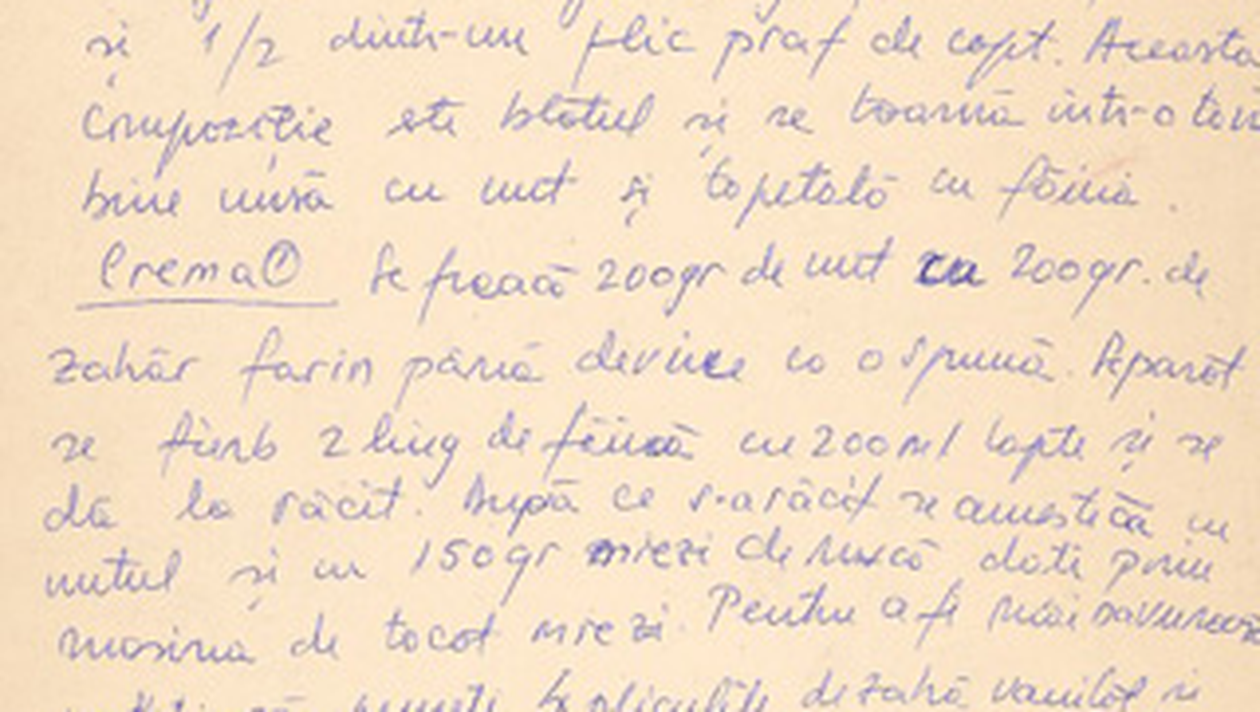 și 1/2 dintr-un plic praf de copt. Aceasta
compoziție este blatul și se toarnă într-o
bine unsă cu unt și tapetată cu făină.
Crema ① Se freacă 200gr de unt cu 200gr. de
zahăr farin până devine ca o spumă. Separat
se fierb 2 ling de făină cu 200 ml lapte și se
dă la răcit. După ce s-a răcit se amestică cu
untul și cu 150gr miezi de nucă dați prin
mașina de tocat miezi. Pentru a fi mai
să puneți 2 pliculițe de zahă vanilat și